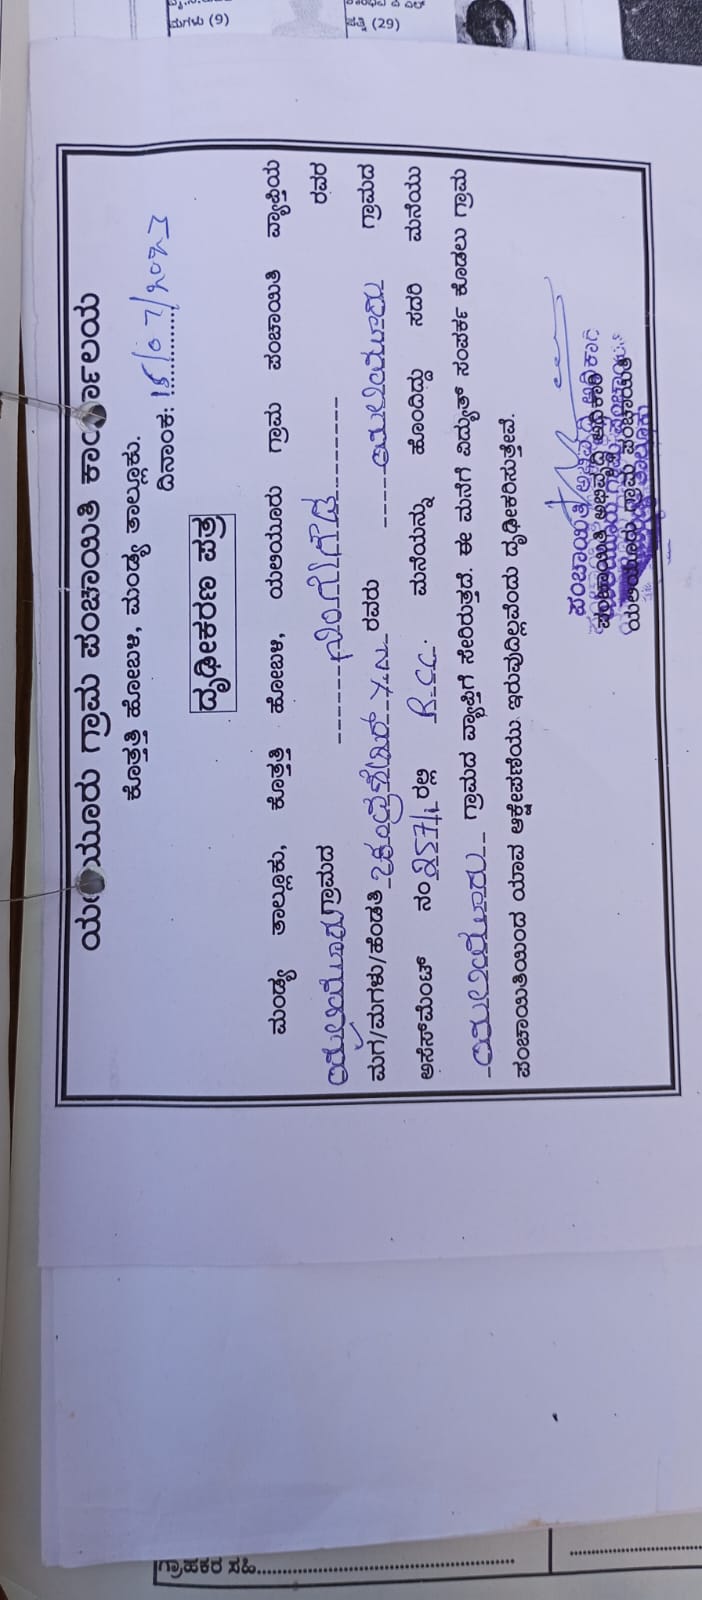 ಯಲಿಯೂರು ಗ್ರಾಮ ಪಂಚಾಯಿತಿ ಕಾರ್ಯಾಲಯ
ಕೊತ್ತತ್ತಿ ಹೋಬಳಿ, ಮಂಡ್ಯ ತಾಲ್ಲೂಕು.
ದಿನಾಂಕ: 15/07/2023
ದೃಢೀಕರಣ ಪತ್ರ
ಮಂಡ್ಯ ತಾಲ್ಲೂಕು, ಕೊತ್ತತ್ತಿ ಹೋಬಳಿ, ಯಲಿಯೂರು ಗ್ರಾಮ ಪಂಚಾಯಿತಿ ವ್ಯಾಪ್ತಿಯ
ಯಲಿಯೂರು ಗ್ರಾಮದ ನಿಂಗೇಗೌಡ ರವರ
ಮಗ/ಮಗಳು/ಹೆಂಡತಿ ಚಂದ್ರಶೇಖರ್ Y.N ರವರು ಯಲಿಯೂರು ಗ್ರಾಮದ
ಅಸೆಸ್‌ಮೆಂಟ್ ನಂ 257/1 ರಲ್ಲಿ R.CC. ಮನೆಯನ್ನು ಹೊಂದಿದ್ದು ಸದರಿ ಮನೆಯು
ಯಲಿಯೂರು ಗ್ರಾಮದ ವ್ಯಾಪ್ತಿಗೆ ಸೇರಿರುತ್ತದೆ. ಈ ಮನೆಗೆ ವಿದ್ಯುತ್ ಸಂಪರ್ಕ ಕೊಡಲು ಗ್ರಾಮ
ಪಂಚಾಯಿತಿಯಿಂದ ಯಾವ ಆಕ್ಷೇಪಣೆಯು ಇರುವುದಿಲ್ಲವೆಂದು ದೃಢೀಕರಿಸುತ್ತೇವೆ.
ಪಂಚಾಯಿತಿ ಅಭಿವೃದ್ಧಿ ಅಧಿಕಾರಿ
ಪಂಚಾಯಿತಿ ಅಭಿವೃದ್ಧಿ ಅಧಿಕಾರಿ
ಯಲಿಯೂರು ಗ್ರಾಮ ಪಂಚಾಯಿತಿ
ಮಗಳು (9)
ಪತ್ನಿ (29)
ಗ್ರಾಹಕರ ಸಹಿ